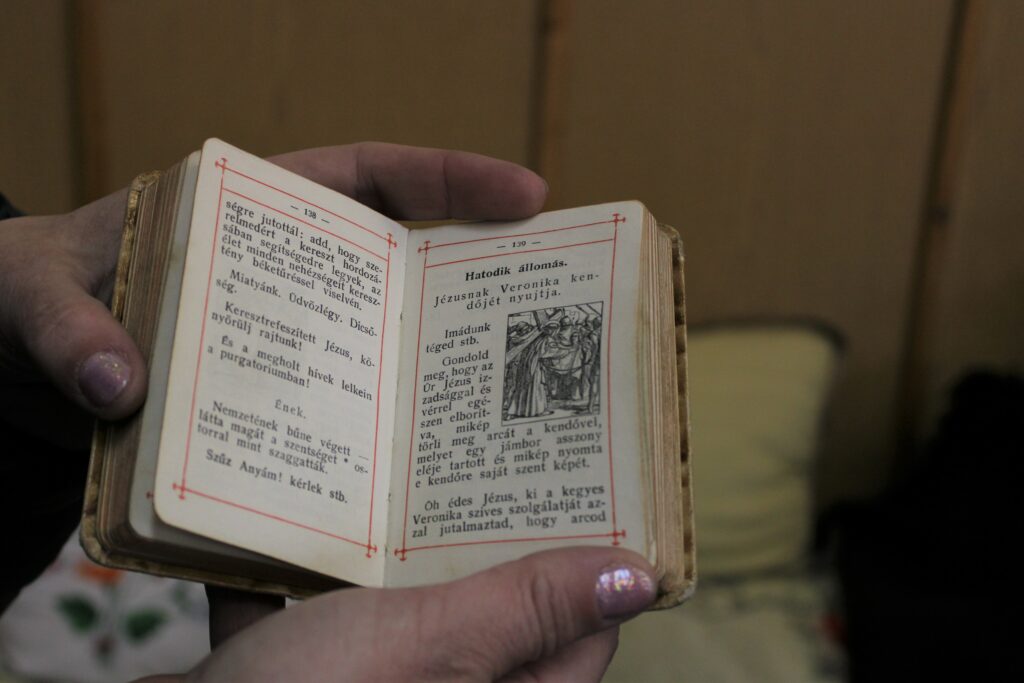 — 138 —
ségre jutottál: add, hogy sze-
relmedért a kereszt hordozá-
sában segítségedre legyek, az
élet minden nehézségeit kereszt-
tény béketűréssel viselvén.
Miatyánk. Üdvözlégy. Dicső-
ség.
Keresztrefeszített Jézus, kö-
nyörülj rajtunk!
És a megholt hívek lelkein
a purgatoriumban!
Ének.
Nemzetének bűne végett —
látta magát a szentséget * os-
torral mint szaggatták.
Szűz Anyám! kérlek stb.
— 139 —
Hatodik állomás.
Jézusnak Veronika ken-
dőjét nyujtja.
Imádunk
téged stb.
Gondold
meg, hogy az
Úr Jézus iz-
zadsággal és
vérrel egé-
szen elborít-
va, mikép
törli meg arcát a kendővel,
melyet egy jámbor asszony
eléje tartott és mikép nyomta
e kendőre saját szent képét.
Óh édes Jézus, ki a kegyes
Veronika szíves szolgálatját az-
zal jutalmaztad, hogy arcod